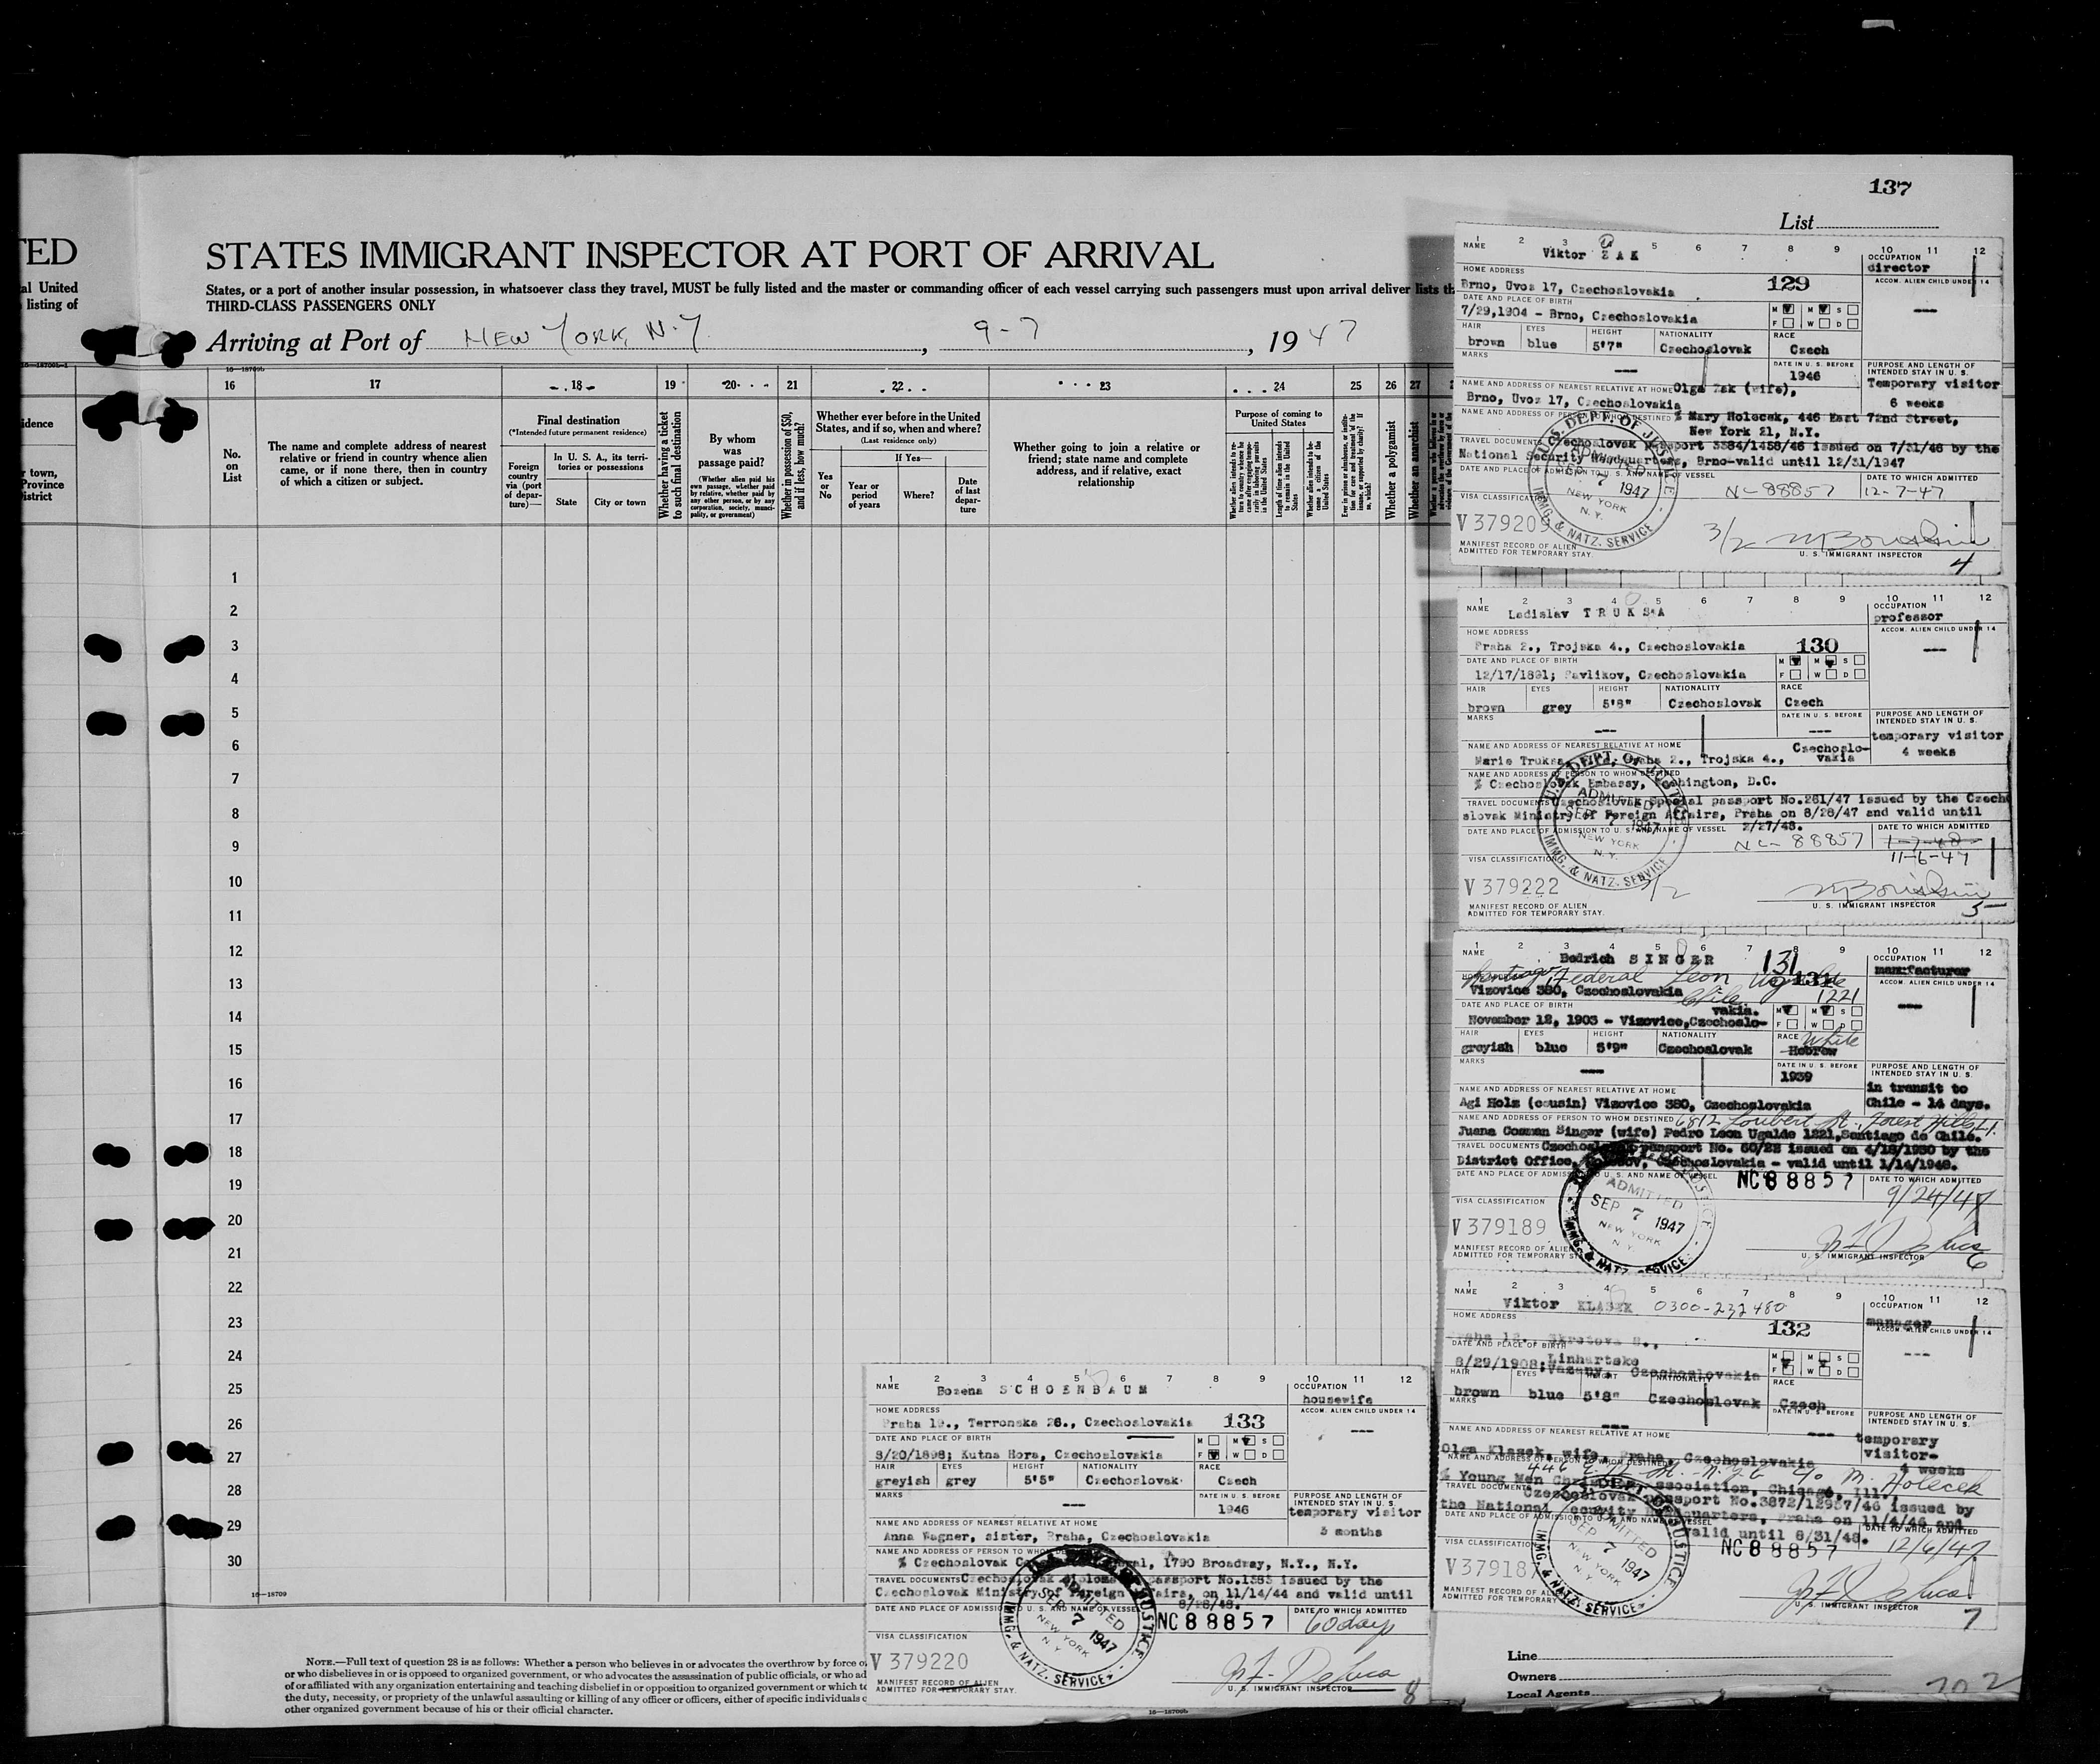 137
List
TED
al United
listing of
STATES IMMIGRANT INSPECTOR AT PORT OF ARRIVAL
States, or a port of another insular possession, in whatsoever class they travel, MUST be fully listed and the master or commanding officer of each vessel carrying such passengers must upon arrival deliver lists th
THIRD-CLASS PASSENGERS ONLY
Arriving at Port of NEW YORK, N.Y. , 9-7 , 1947
16—18709b
16 17 18 19 20 21 22 23 24 25 26 27
idence
r town,
Province
istrict
No. on List
The name and complete address of nearest relative or friend in country whence alien came, or if none there, then in country of which a citizen or subject.
Final destination
(*Intended future permanent residence)
Foreign country via (port of departure)—
In U. S. A., its territories or possessions
State
City or town
Whether having a ticket to such final destination
By whom was passage paid?
(Whether alien paid his own passage, whether paid by relative, whether paid by any other person, or by any corporation, society, municipality, or government)
Whether in possession of $50, and if less, how much?
Whether ever before in the United States, and if so, when and where?
(Last residence only)
Yes or No
If Yes—
Year or period of years
Where?
Date of last departure
Whether going to join a relative or friend; state name and complete address, and if relative, exact relationship
Purpose of coming to United States
Whether alien intends to return to country whence he came after engaging temporarily in laboring pursuits in the United States
Length of time alien intends to remain in the United States
Whether alien intends to become a citizen of the United States
Whether a polygamist
Whether an anarchist
1
2
3
4
5
6
7
8
9
10
11
12
13
14
15
16
17
18
19
20
21
22
23
24
25
26
27
28
29
30
16—18709
NOTE.—Full text of question 28 is as follows: Whether a person who believes in or advocates the overthrow by force o
or who disbelieves in or is opposed to organized government, or who advocates the assassination of public officials, or who ad
of or affiliated with any organization entertaining and teaching disbelief in or opposition to organized government or which te
the duty, necessity, or propriety of the unlawful assaulting or killing of any officer or officers, either of specific individuals o
other organized government because of his or their official character.
1 2 3 5 6 7 8 9 10 11 12
NAME Viktor ZAK
OCCUPATION director
HOME ADDRESS
129
ACCOM. ALIEN CHILD UNDER 14
Brno, Uvoz 17, Czechoslovakia
DATE AND PLACE OF BIRTH
7/29,1904 - Brno, Czechoslovakia
M M S
F W D
---
HAIR EYES HEIGHT NATIONALITY RACE
brown blue 5'7" Czechoslovak Czech
MARKS
---
DATE IN U. S. BEFORE
1946
PURPOSE AND LENGTH OF INTENDED STAY IN U. S.
Temporary visitor
6 weeks
NAME AND ADDRESS OF NEAREST RELATIVE AT HOME Olga Zak (wife),
Brno, Uvoz 17, Czechoslovakia
NAME AND ADDRESS OF PERSON TO WHOM DESTINED % Mary Holecek, 446 East 72nd Street,
New York 21, N.Y.
TRAVEL DOCUMENTS Czechoslovak Passport 3384/1458/46 issued on 7/31/46 by the
National Security Headquarters, Brno-valid until 12/31/1947
DATE AND PLACE OF ADMISSION TO U. S. AND NAME OF VESSEL
NC-88857
DATE TO WHICH ADMITTED
12-7-47
VISA CLASSIFICATION
V 379209
3/2
U.S. DEPT. OF JUSTICE
ADMITTED
SEP 7 1947
NEW YORK
N. Y.
IMMG. & NATZ. SERVICE
MANIFEST RECORD OF ALIEN
ADMITTED FOR TEMPORARY STAY.
U. S. IMMIGRANT INSPECTOR
4
1 2 3 4 5 6 7 8 9 10 11 12
NAME Ladislav TRUKSA
OCCUPATION professor
HOME ADDRESS
130
ACCOM. ALIEN CHILD UNDER 14
Praha 2., Trojska 4., Czechoslovakia
---
DATE AND PLACE OF BIRTH
12/17/1891; Pavlikov, Czechoslovakia
M M S
F W D
HAIR EYES HEIGHT NATIONALITY RACE
brown grey 5'8" Czechoslovak Czech
MARKS
---
DATE IN U. S. BEFORE
---
PURPOSE AND LENGTH OF INTENDED STAY IN U. S.
temporary visitor
4 weeks
NAME AND ADDRESS OF NEAREST RELATIVE AT HOME
Marie Truksa, Praha 2., Trojska 4., Czechoslo-
vakia
NAME AND ADDRESS OF PERSON TO WHOM DESTINED
% Czechoslovak Embassy, Washington, D.C.
TRAVEL DOCUMENTS Czechoslovak Special passport No.261/47 issued by the Czech
slovak Ministry of Foreign Affairs, Praha on 8/28/47 and valid until
2/27/48.
DATE AND PLACE OF ADMISSION TO U. S. AND NAME OF VESSEL
NC-88857
DATE TO WHICH ADMITTED
1-7-48
11-6-47
VISA CLASSIFICATION
V 379222
3/2
U.S. DEPT. OF JUSTICE
ADMITTED
SEP 7 1947
NEW YORK
N. Y.
IMMG. & NATZ. SERVICE
MANIFEST RECORD OF ALIEN
ADMITTED FOR TEMPORARY STAY.
U. S. IMMIGRANT INSPECTOR
5
1 2 3 4 5 6 7 8 9 10 11 12
NAME Bedrich SINGER
131
OCCUPATION manufacturer
HOME ADDRESS
Santiago Federal Leon Ugalde
131
1221
Chile
ACCOM. ALIEN CHILD UNDER 14
Vizovice 380, Czechoslovakia
---
DATE AND PLACE OF BIRTH
vakia.
November 12, 1903 - Vizovice,Czechoslo-
M M S
F W D
HAIR EYES HEIGHT NATIONALITY RACE White
greyish blue 5'9" Czechoslovak Hebrew
MARKS
---
DATE IN U. S. BEFORE
1939
PURPOSE AND LENGTH OF INTENDED STAY IN U. S.
in transit to
Chile - 14 days.
NAME AND ADDRESS OF NEAREST RELATIVE AT HOME
Agi Holz (cousin) Vizovice 380, Czechoslovakia
NAME AND ADDRESS OF PERSON TO WHOM DESTINED 6812 Loubert St., Forest Hills L.I.
Juana Cosman Singer (wife) Pedro Leon Ugalde 1221,Santiago de Chile.
TRAVEL DOCUMENTS Czechoslovak passport No. 60/28 issued on 4/18/1930 by the
District Office, Czechoslovakia - valid until 1/14/1948.
DATE AND PLACE OF ADMISSION TO U. S. AND NAME OF VESSEL
NC 88857
DATE TO WHICH ADMITTED
9/24/47
VISA CLASSIFICATION
V 379189
ADMITTED
SEP 7 1947
NEW YORK
N. Y.
IMMG. & NATZ. SERVICE
MANIFEST RECORD OF ALIEN
ADMITTED FOR TEMPORARY STAY.
U. S. IMMIGRANT INSPECTOR
6
1 2 3 4 5 6 7 8 9 10 11 12
NAME Viktor KLASEK 0300-232480
OCCUPATION manager
HOME ADDRESS
132
ACCOM. ALIEN CHILD UNDER 14
Praha 12. Skretova
---
DATE AND PLACE OF BIRTH
8/29/1908; Linhartske
Vazany, Czechoslovakia
M M S
F W D
HAIR EYES HEIGHT NATIONALITY RACE
brown blue 5'8" Czechoslovak Czech
MARKS
---
DATE IN U. S. BEFORE
---
PURPOSE AND LENGTH OF INTENDED STAY IN U. S.
temporary
visitor-
4 weeks
NAME AND ADDRESS OF NEAREST RELATIVE AT HOME
Olga Klasek, wife, Praha, Czechoslovakia
NAME AND ADDRESS OF PERSON TO WHOM DESTINED
446 E 72 St. N.Y.C c/o M. Holecek
% Young Men Christian Association, Chicago, Ill.
TRAVEL DOCUMENTS
Czechoslovak passport No.3872/12957/46 issued by
the National Security Headquarters, Praha on 11/4/46 and
valid until 8/31/48.
DATE AND PLACE OF ADMISSION TO U. S. AND NAME OF VESSEL
NC 88857
DATE TO WHICH ADMITTED
12/6/47
VISA CLASSIFICATION
V 379187
U.S. DEPT. OF JUSTICE
ADMITTED
SEP 7 1947
NEW YORK
N. Y.
IMMG. & NATZ. SERVICE
MANIFEST RECORD OF ALIEN
ADMITTED FOR TEMPORARY
U. S. IMMIGRANT INSPECTOR
7
1 2 3 4 5 6 7 8 9 10 11 12
NAME Bozena SCHOENBAUM
OCCUPATION housewife
HOME ADDRESS
133
ACCOM. ALIEN CHILD UNDER 14
Praha 19., Terronska 26., Czechoslovakia
---
DATE AND PLACE OF BIRTH
8/20/1898; Kutna Hora, Czechoslovakia
M M S
F W D
HAIR EYES HEIGHT NATIONALITY RACE
greyish grey 5'5" Czechoslovak Czech
MARKS
---
DATE IN U. S. BEFORE
1946
PURPOSE AND LENGTH OF INTENDED STAY IN U. S.
temporary visitor
3 months
NAME AND ADDRESS OF NEAREST RELATIVE AT HOME
Anna Wagner, sister, Praha, Czechoslovakia
NAME AND ADDRESS OF PERSON TO WHOM DESTINED
% Czechoslovak Consulate General, 1790 Broadway, N.Y., N.Y.
TRAVEL DOCUMENTS Czechoslovak diplomatic passport No.1383 issued by the
Czechoslovak Ministry of Foreign Affairs, on 11/14/44 and valid until
DATE AND PLACE OF ADMISSION TO U. S. AND NAME OF VESSEL
NC 88857
DATE TO WHICH ADMITTED
60 days
VISA CLASSIFICATION
V 379220
ADMITTED
SEP 7 1947
NEW YORK
N. Y.
IMMG. & NATZ. SERVICE
MANIFEST RECORD OF ALIEN
ADMITTED FOR TEMPORARY STAY.
U. S. IMMIGRANT INSPECTOR
8
16—18709b
Line
Owners
Local Agents
202